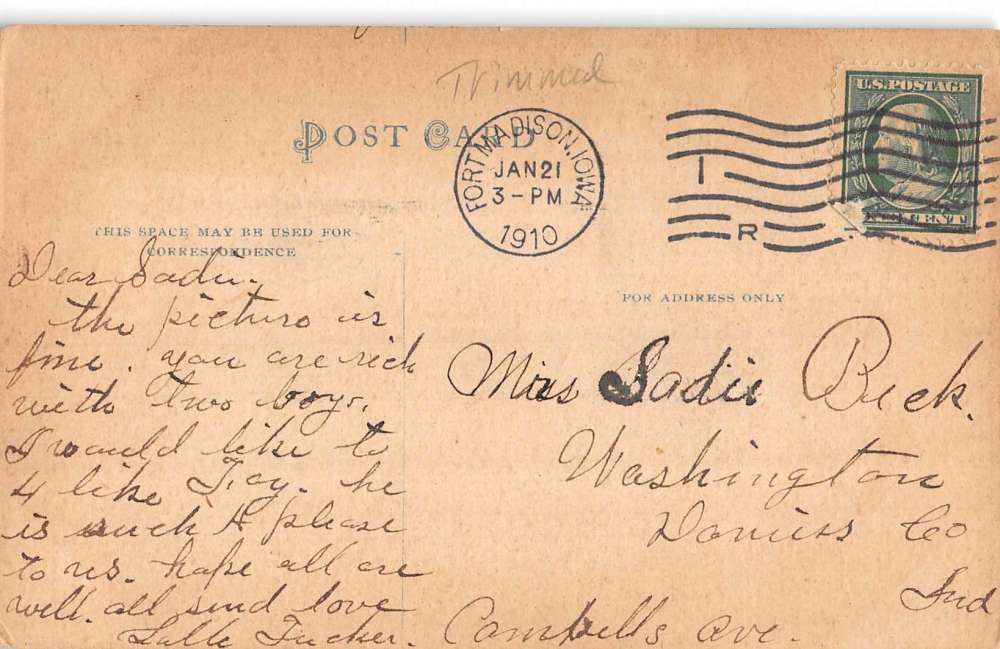 Trimmed
POST CARD
FORT MADISON, IOWA
JAN 21
3-PM
1910
I
R
U.S. POSTAGE
ONE CENT
THIS SPACE MAY BE USED FOR
CORRESPONDENCE
FOR ADDRESS ONLY
Dear Sadie.
the picture is
fine. you are rich
with two boys.
I would like to
4 like Foy. he
is such A please
to us. hope all are
well. all send love
Tucker.
Miss Sadie Beck.
Washington
Daviess Co
Ind
Campbells ave.